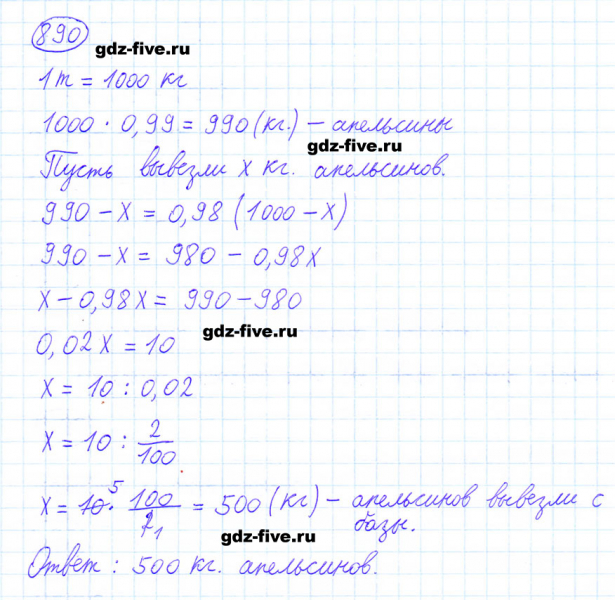 890
gdz-five.ru
1т = 1000 кг
1000 · 0,99 = 990 (кг.) – апельсины
gdz-five.ru
Пусть вывезли х кг. апельсинов.
990 – х = 0,98 (1000 – х)
990 – х = 980 – 0,98х
х – 0,98х = 990 – 980
gdz-five.ru
0,02х = 10
х = 10 : 0,02
х = 10 : 2/100
х = 10 5 · 100/2 1 = 500 (кг) – апельсинов вывезли с
базы.
gdz-five.ru
Ответ : 500 кг. апельсинов.